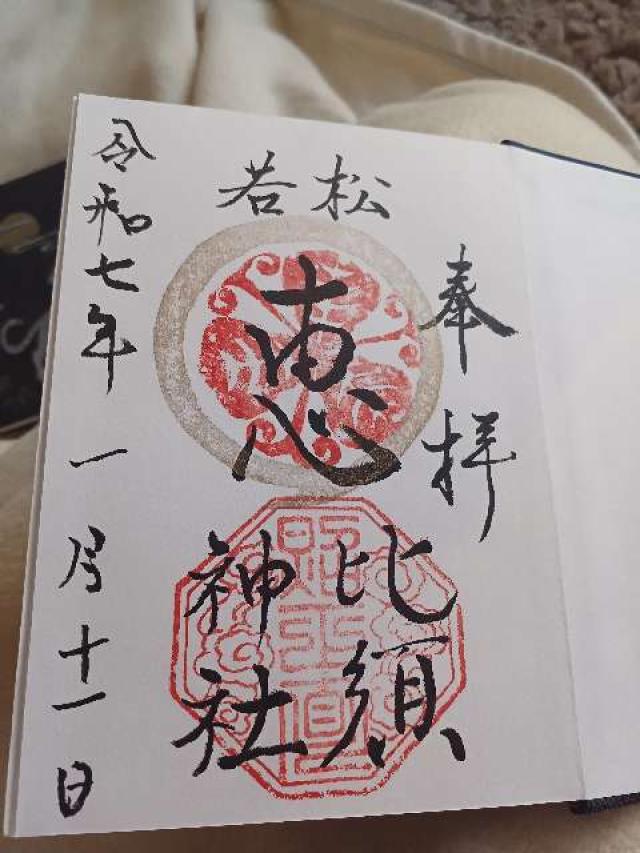 奉拝
若松
恵比須
神社
令和七年一月十一日